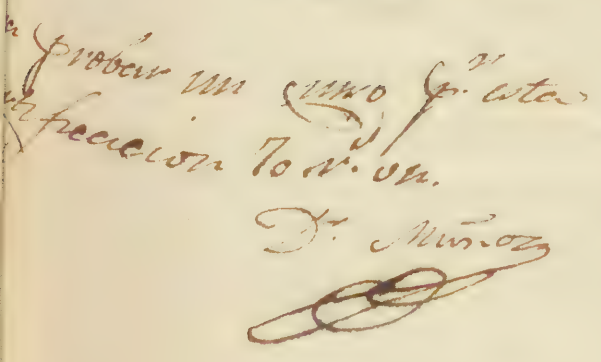 probar un curso p.r esta
certificacion 70 r.s vn.
Dr. Muñoz